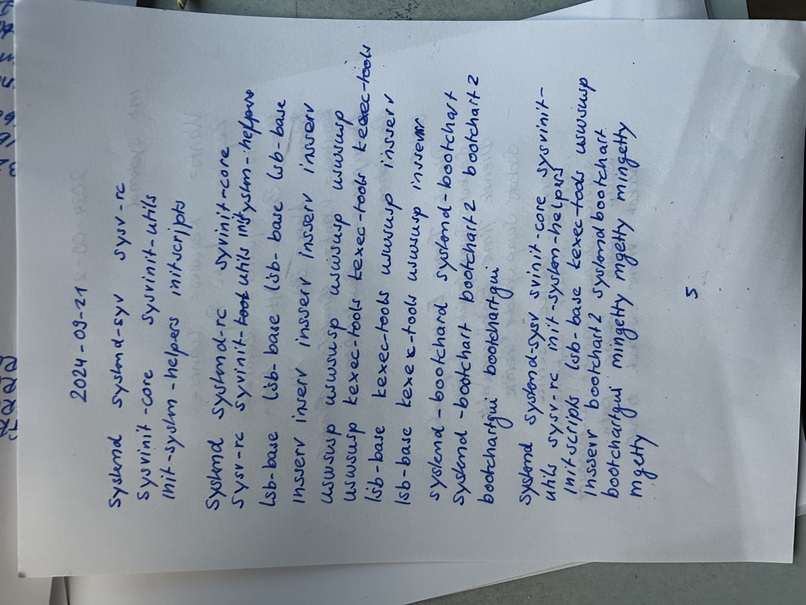 2024-09-21
systemd systemd-sysv sysv-rc
sysvinit-core sysvinit-utils
init-system-helpers initscripts
systemd systemd-rc syvinit-core
sysv-rc syvinit-tool utils init system-helpers
lsb-base lsb-base lsb-base lsb-base
insserv inserv insserv insserv insserv
uswsusp uswsusp uswsusp uswsusp
uswsusp kexec-tools kexec-tools kexec-tools
lsb-base kexec-tools uswsusp insserv
lsb-base kexec-tools uswsusp insserv
systemd-bootchard systemd-bootchart
systemd-bootchart bootchart2 bootchart2
bootchartgui bootchartgui
systemd systemd-sysv svinit-core sysvinit-
utils sysv-rc init-system-helpers
initscripts lsb-base kexec-tools uswsusp
insserv bootchart2 systemd bootchart
bootchartgui mingetty mgetty mingetty
mgetty
5